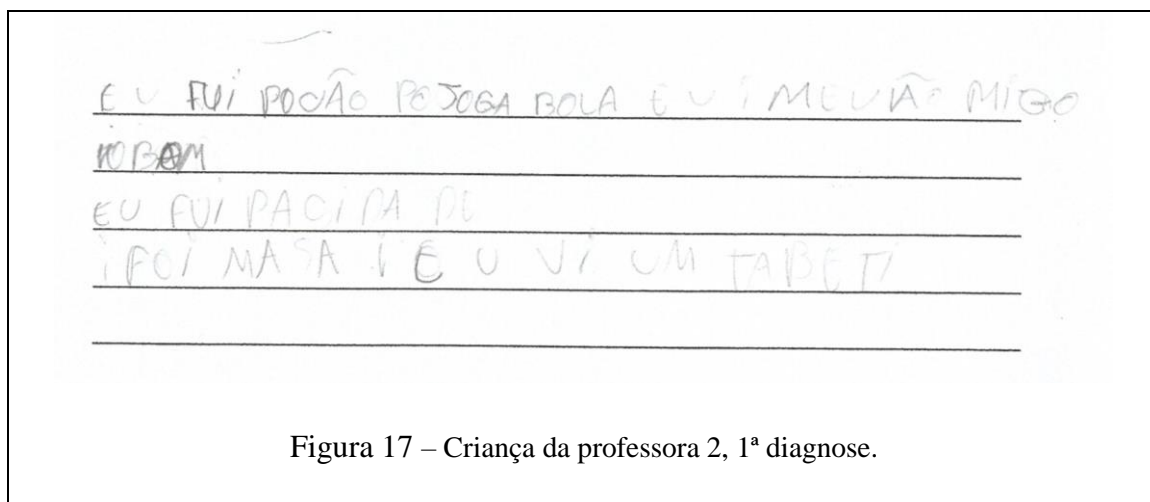 EU FUI POOÃO PO JOGA BOLA E U I MEU ÃO MIGO
EU FUI PAOI PA
I FOI MASA I E U VI UM TABETI
Figura 17 – Criança da professora 2, 1ª diagnose.